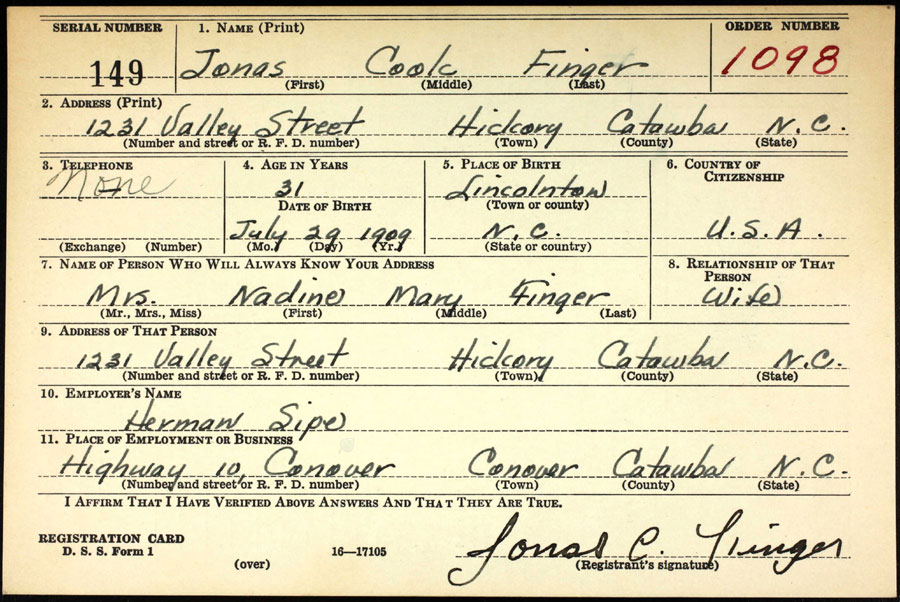 SERIAL NUMBER 1. NAME (Print) ORDER NUMBER
149 Jonas Cook Finger 1098
(First) (Middle) (Last)
2. ADDRESS (Print)
1231 Valley Street Hickory Catawba N.C.
(Number and street or R. F. D. number) (Town) (County) (State)
3. TELEPHONE 4. AGE IN YEARS 5. PLACE OF BIRTH 6. COUNTRY OF CITIZENSHIP
None 31 Lincolnton
DATE OF BIRTH (Town or county)
July 29 1909 N.C. U.S.A.
(Exchange) (Number) (Mo.) (Day) (Yr.) (State or country)
7. NAME OF PERSON WHO WILL ALWAYS KNOW YOUR ADDRESS 8. RELATIONSHIP OF THAT PERSON
Mrs. Nadine Mary Finger Wife
(Mr., Mrs., Miss) (First) (Middle) (Last)
9. ADDRESS OF THAT PERSON
1231 Valley Street Hickory Catawba N.C.
(Number and street or R. F. D. number) (Town) (County) (State)
10. EMPLOYER'S NAME
Herman Sipe
11. PLACE OF EMPLOYMENT OR BUSINESS
Highway 10, Conover Conover Catawba N.C.
(Number and street or R. F. D. number) (Town) (County) (State)
I AFFIRM THAT I HAVE VERIFIED ABOVE ANSWERS AND THAT THEY ARE TRUE.
REGISTRATION CARD
D. S. S. Form 1 16—17105 Jonas C. Finger
(over) (Registrant's signature)